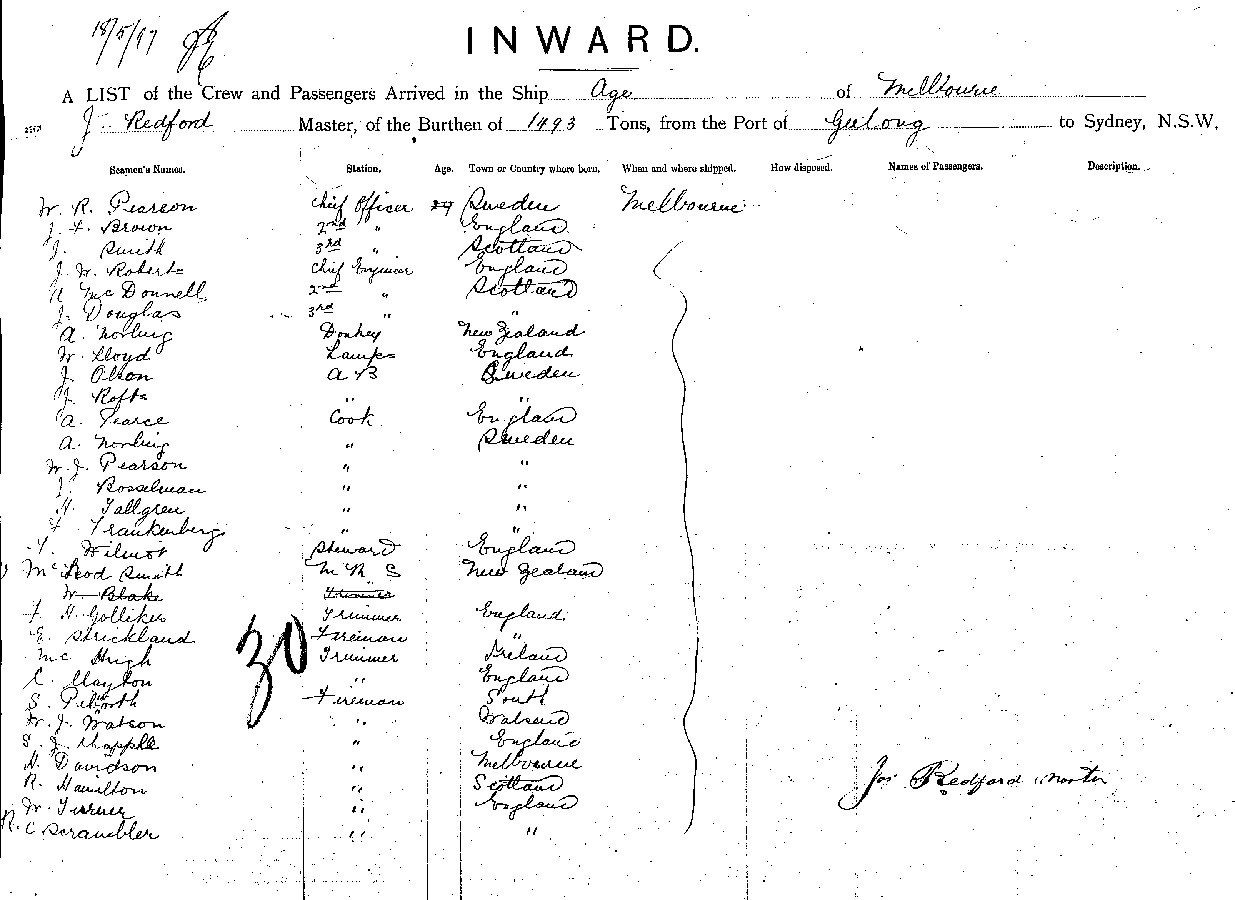 18/5/97
INWARD.
A LIST of the Crew and Passengers Arrived in the Ship Age of Melbourne
J. Redford Master, of the Burthen of 1493 Tons, from the Port of Geelong to Sydney, N.S.W.
Seamen's Names. Station. Age. Town or Country where born. When and where shipped. How disposed. Names of Passengers. Description.
W. R. Pearson Chief Officer Sweden Melbourne
J. F. Brown 2nd " England
J. Smith 3rd " Scotland
J. W. Roberts Chief Engineer England
Mc Donnell 2nd " Scotland
J. Douglas 3rd " "
A. Norling Donkey New Zealand
W. Lloyd Lamps England
J. Olson A B Sweden
J. " "
A. Pearce Cook England
A. Norling " Sweden
W. J. Pearson " "
J. Bosselman " "
H. Tallgren " "
F. Frankenberg " "
Wilmot Steward England
McLeod Smith M R S New Zealand
W. Blake Trimmer
F. H. Golliker Trimmer England
E. Strickland Fireman "
30
Mc Hugh Trimmer Ireland
C. Clayton " England
S. Fireman South
W. J. Watson "
S. J. Chapple " England
H. Davidson " Melbourne
R. Hamilton " Scotland
Jos Redford Master
W. Turner " England
R. C Scrambler " "